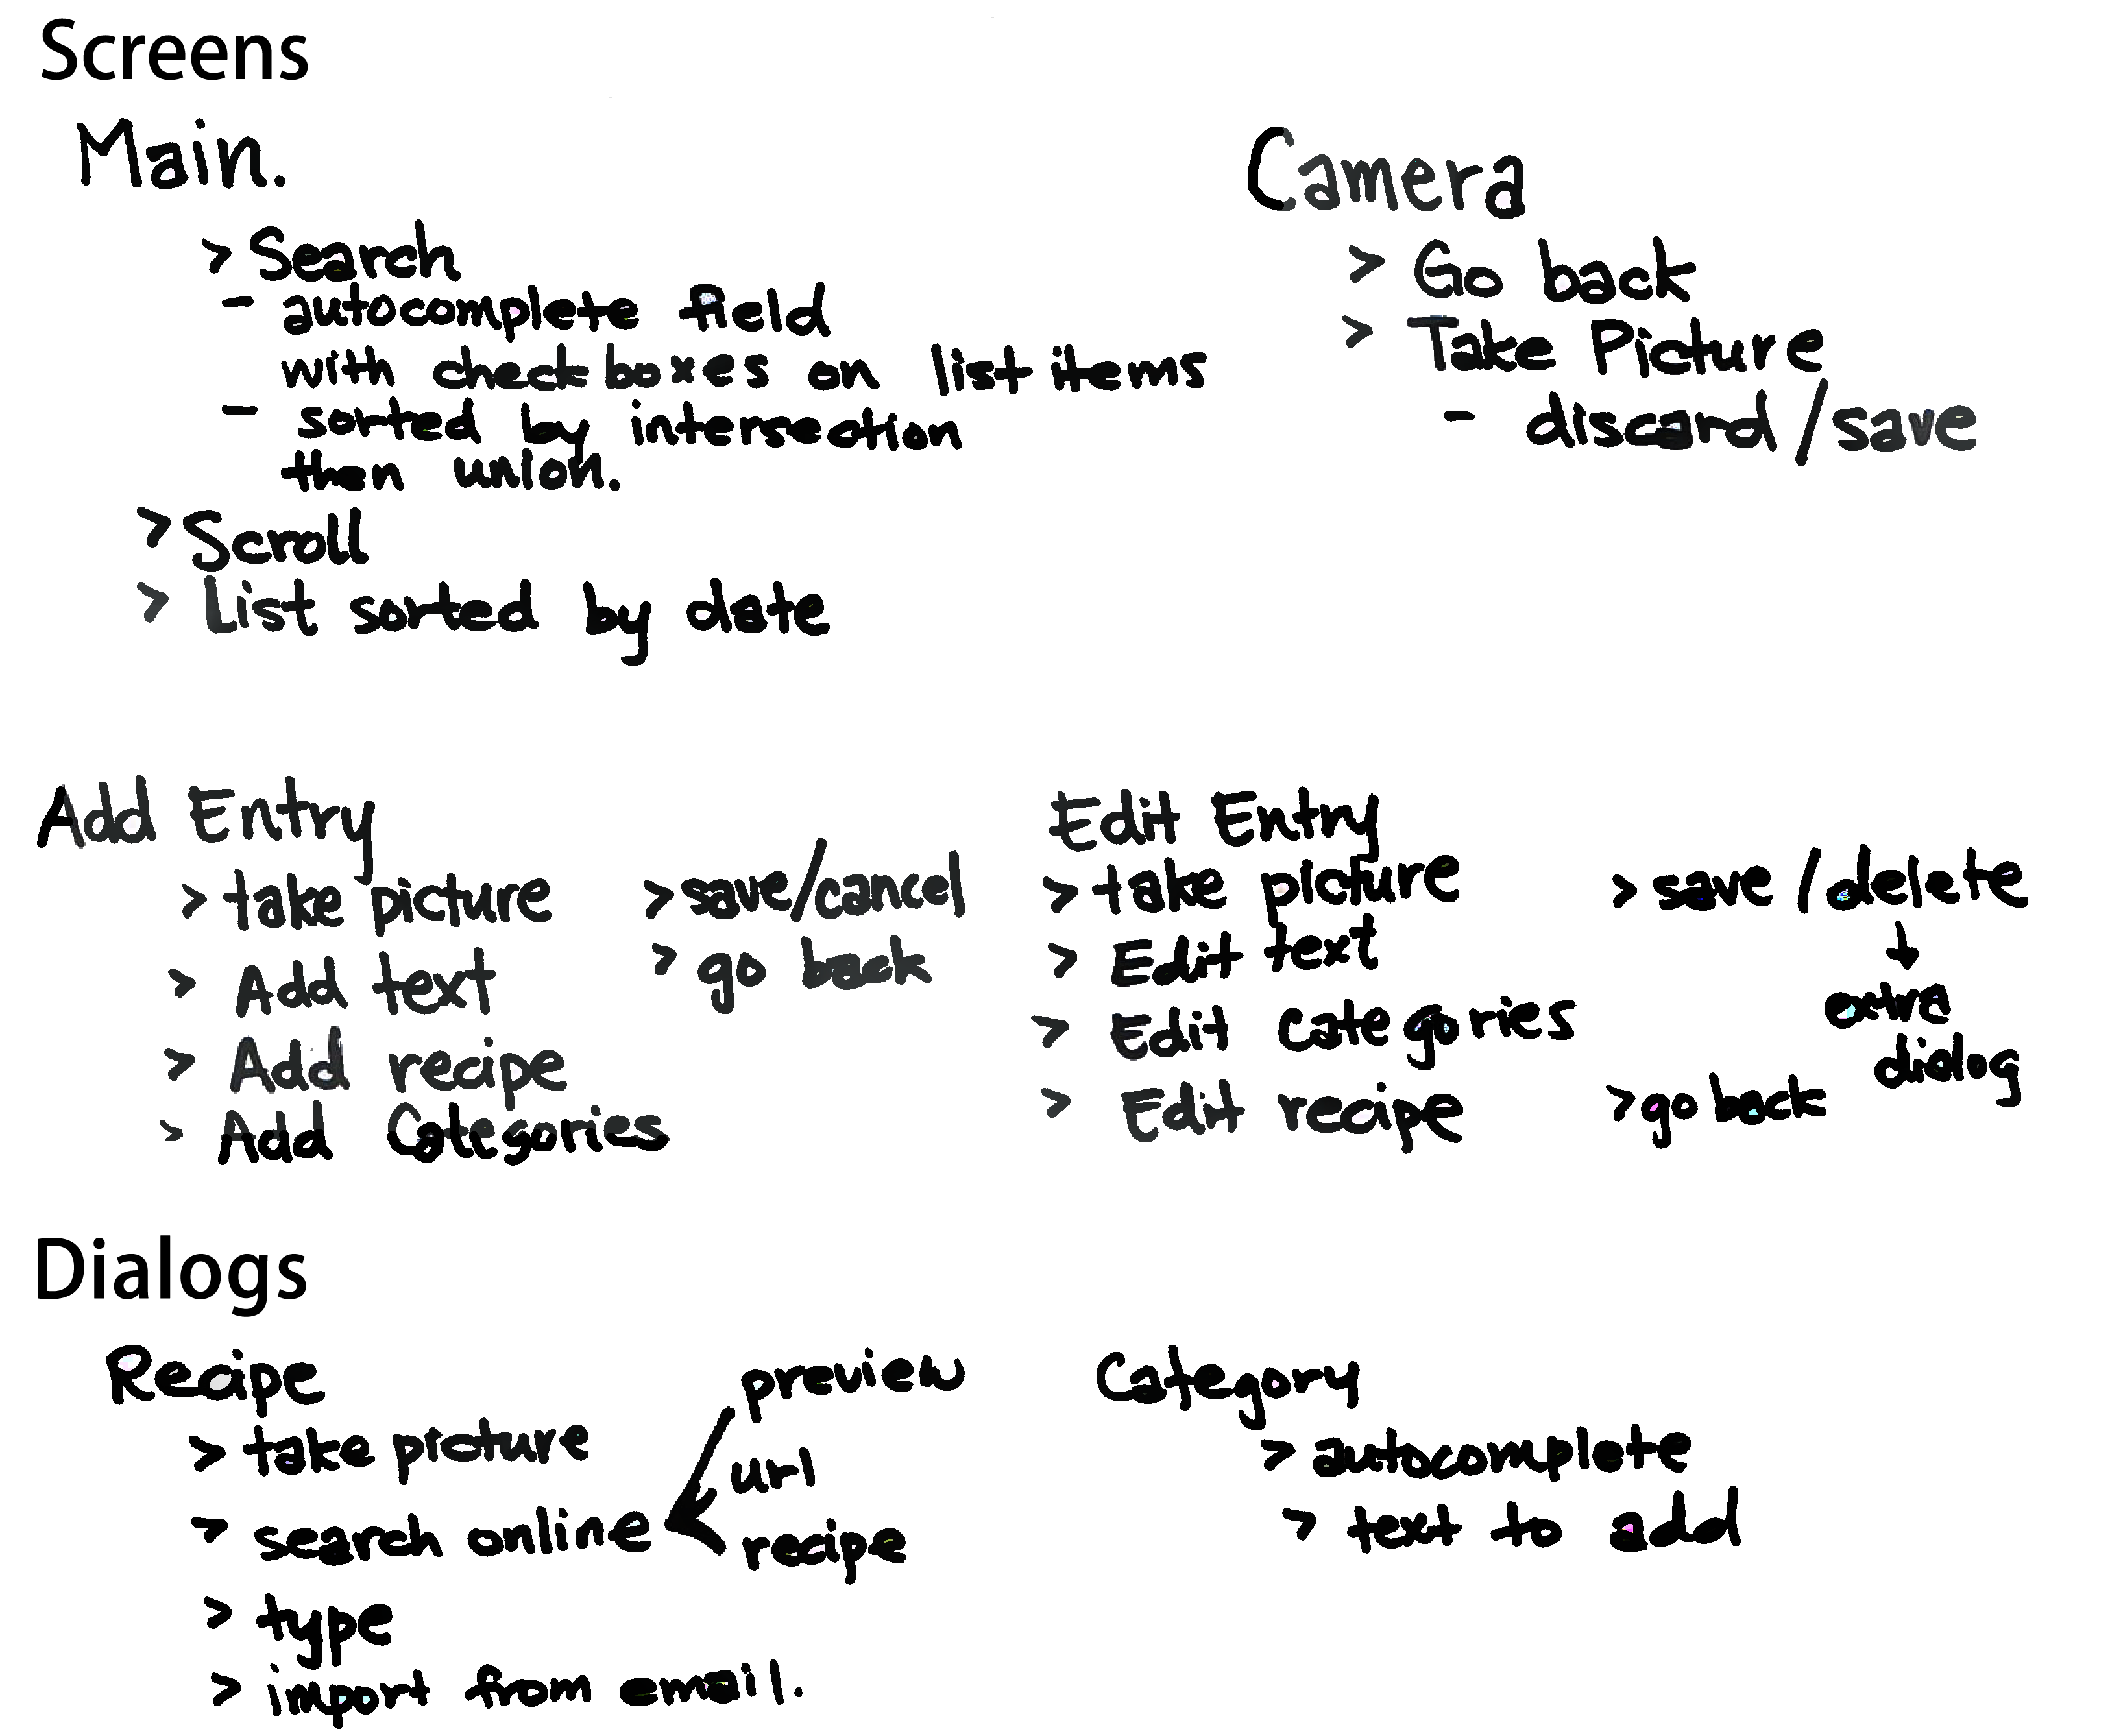 Screens
Main.
> Search
- autocomplete field
with checkboxes on list items
- sorted by intersection
then union.
> Scroll
> List sorted by date
Camera
> Go back
> Take Picture
- discard/save
Add Entry
> take picture
> Add text
> Add recipe
> Add Categories
> save/cancel
> go back
Edit Entry
> take picture
> Edit text
> Edit categories
> Edit recipe
> save/delete
extra
dialog
> go back
Dialogs
Recipe
> take picture
> search online
preview
url
recipe
> type
> import from email.
Category
> autocomplete
> text to add